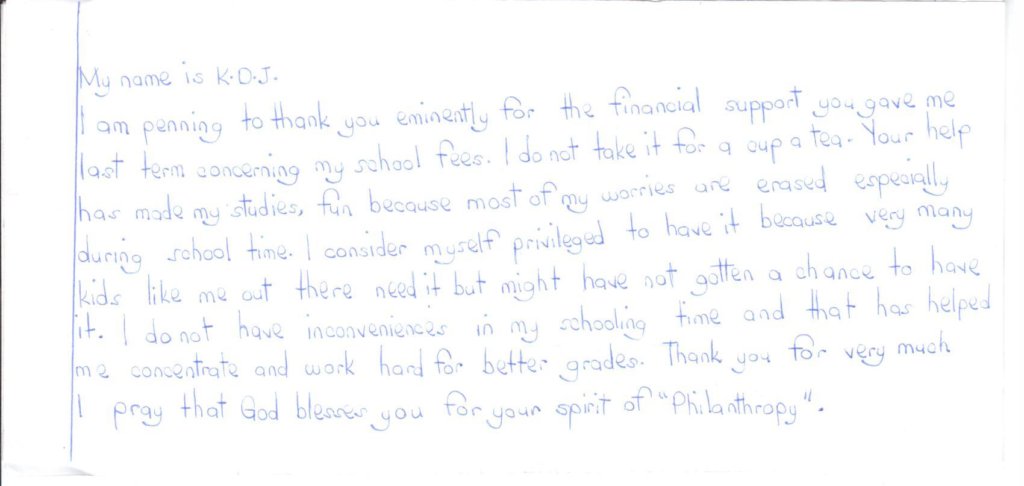 My name is K.D.J.
I am penning to thank you eminently for the financial support you gave me
last term concerning my school fees. I do not take it for a cup a tea. Your help
has made my studies, fun because most of my worries are erased especially
during school time. I consider myself privileged to have it because very many
kids like me out there need it but might have not gotten a chance to have
it. I do not have inconveniences in my schooling time and that has helped
me concentrate and work hard for better grades. Thank you for very much
I pray that God blesses you for your spirit of "Philanthropy".